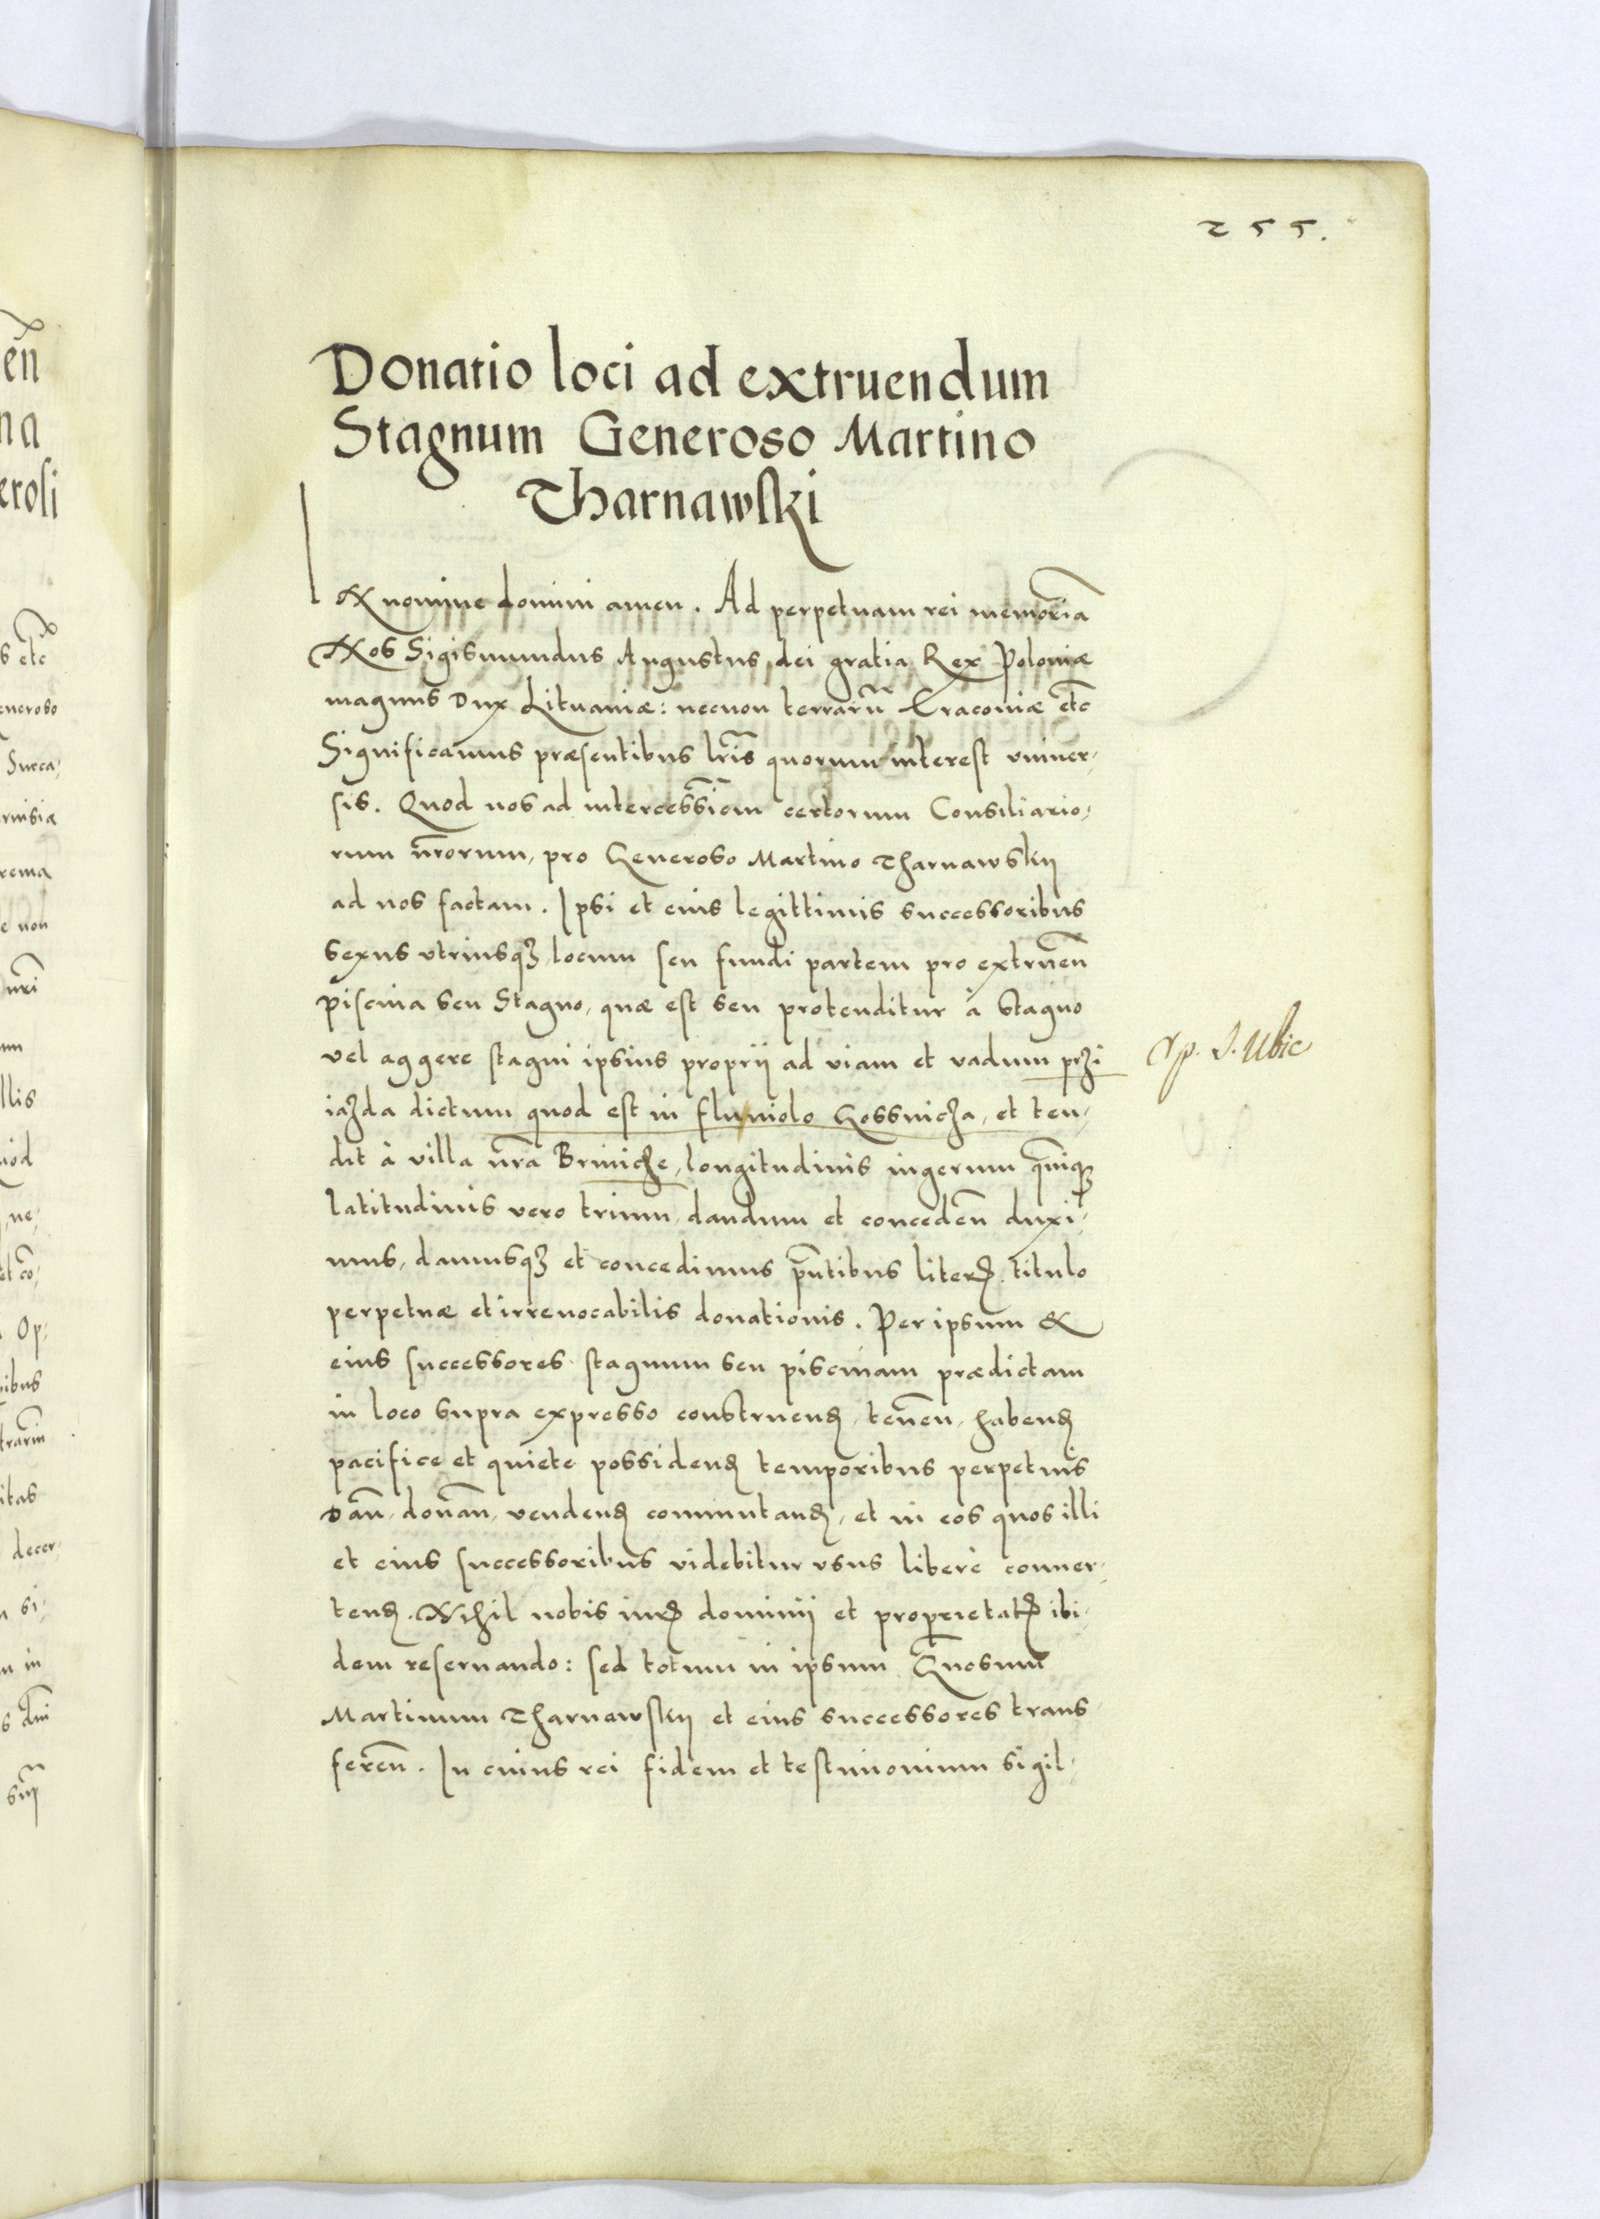 255.
Donatio loci ad extruendum
Stagnum Generoso Martino
Tharnawski
IN nomine domini amen. Ad perpetuam rei memoria͠
Nos Sigismundus Augustus dei gratia Rex Poloniæ
magnus Dux Lituaniæ: necnon terraru͠ Cracoviæ etc͠
Significamus præsentibus lr͠is quorum interest vniuer-
sis. Quod nos ad intercess͠iom certorum Consiliario-
rum nr͠orum, pro Generoso Martino Tharnawskij
ad nos factam. Ipsi et eius legittimis successoribus
sexus vtriusqꝫ locum seu fundi partem pro extrue͠n
piscina seu Stagno, quæ est seu protenditur à Stagno
vel aggere stagni ipsius proprij ad viam et vadum przi
iazda dictum quod est in fluuiolo Gossnicza, et ten-
dit à villa nr͠a Bruicze, longitudinis iugerum q͠uinqꝫ
latitudinis vero trium, dandum et concede͠n duxi-
mus, damusqꝫ et concedimus pr͠ntibus literꝭ titulo
perpetuæ et irreuocabilis donationis. Per ipsum &
eius successores stagnum seu piscinam prædictam
in loco supra expresso construendꝭ, tene͠n, habendꝭ
pacifice et quiete possidendꝭ temporibus perpetuis
Da͠n, dona͠n, vendendꝭ commutandꝭ, et in eos quos illi
et eius successoribus videbitur vsus liberè conuer-
tendꝭ. Nihil nobis iurꝭ dominij et proprietatꝭ ibi-
dem reseruando: sed totum in ipsum G͠nosum
Martinum Tharnawskij et eius successores trans
fere͠n. In cuius rei fidem et testimonium sigil-